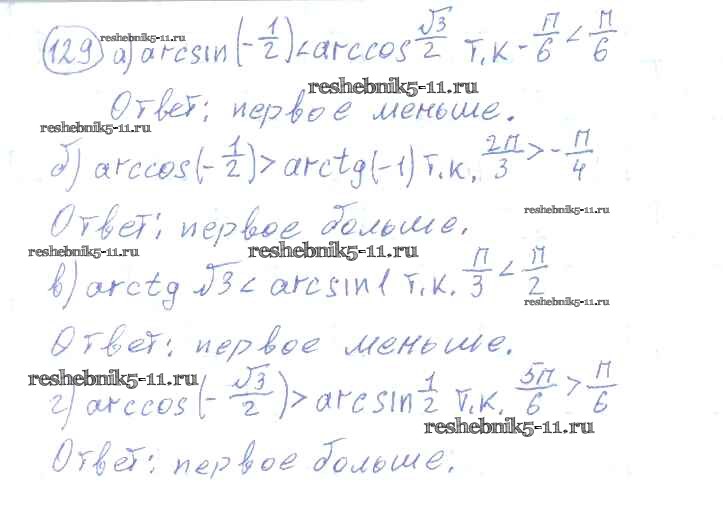 129 а) arcsin(-1/2) < arccos √3/2 т.к -π/6 < π/6
reshebnik5-11.ru
reshebnik5-11.ru
Ответ: первое меньше.
reshebnik5-11.ru
б) arccos(-1/2) > arctg(-1) т.к. 2π/3 > -π/4
reshebnik5-11.ru
Ответ: первое больше.
reshebnik5-11.ru
reshebnik5-11.ru
в) arctg √3 < arcsin1 т.к. π/3 < π/2
reshebnik5-11.ru
Ответ: первое меньше.
reshebnik5-11.ru
г) arccos(-√3/2) > arcsin 1/2 т.к. 5π/6 > π/6
reshebnik5-11.ru
Ответ: первое больше.